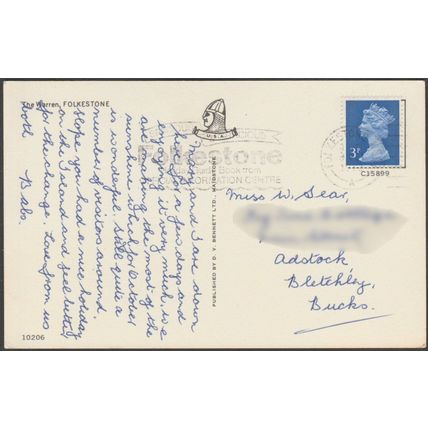 The Warren, FOLKESTONE
Mary and I are down
here for a few days and
enjoying it very much, we
are making the most of the
sunshine which for October
is wonderful. Still quite a
number of visitors around.
Hope you had a nice holiday
on the Island and feel better
for the change. Love from us
both Babs.
10206
PUBLISHED BY D. V. BENNETT LTD., MAIDSTONE
U.S.A.
Folkestone
Guide Book from
INFORMATION CENTRE
3P
CJ5899
Miss W. Sear,
Adstock
Bletchley,
Bucks.